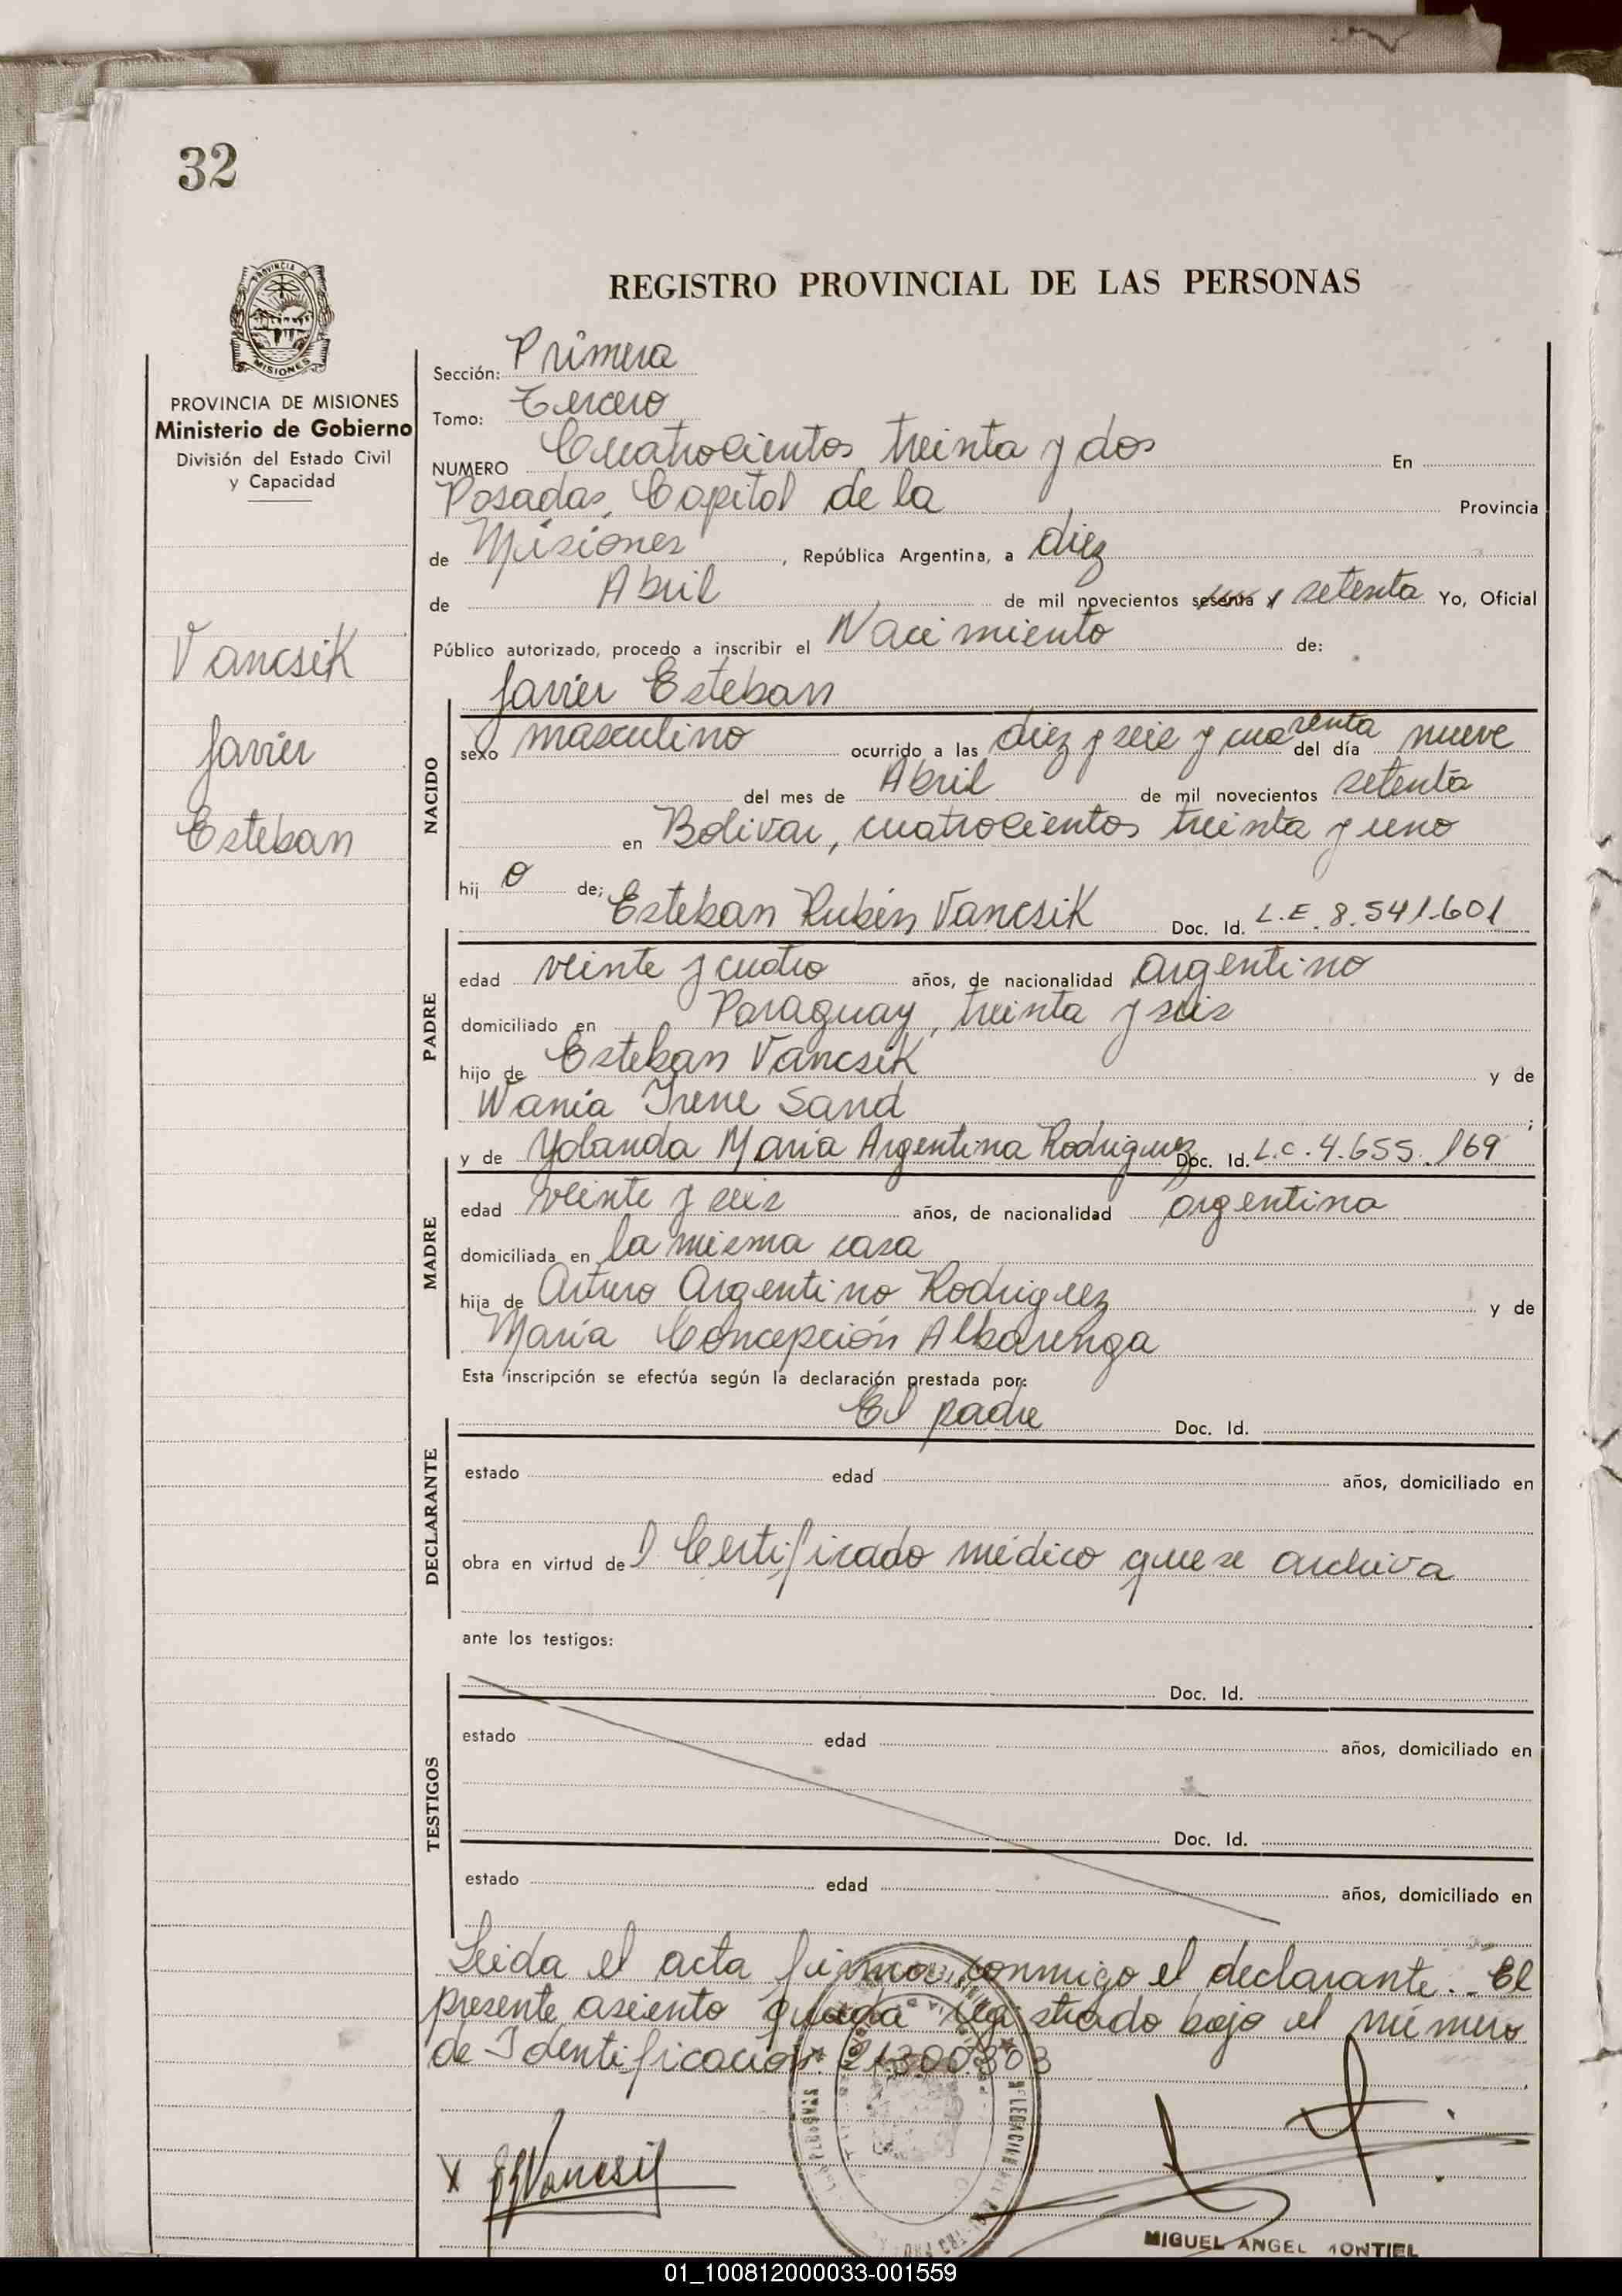 32
PROVINCIA DE MISIONES
Ministerio de Gobierno
División del Estado Civil
y Capacidad
Vancsik
Javier
Esteban
REGISTRO PROVINCIAL DE LAS PERSONAS
Sección: Primera
Tomo: Tercero
NUMERO Cuatrocientos treinta y dos En
Posadas, Capital de la Provincia
de Misiones, República Argentina, a diez
de Abril de mil novecientos sesenta y setenta Yo, Oficial
Público autorizado, procedo a inscribir el Nacimiento de:
Javier Esteban
NACIDO
sexo masculino ocurrido a las diez y seis y cuarenta del día nueve
del mes de Abril de mil novecientos setenta
en Bolivar, cuatrocientos treinta y uno
hij o de;
Esteban Rubén Vancsik Doc. Id. L.E. 8.541.601
PADRE
edad veinte y cuatro años, de nacionalidad argentino
domiciliado en Paraguay, treinta y seis
hijo de Esteban Vancsik y de
Wania Irene Sand ;
y de Yolanda María Argentina Rodriguez Doc. Id. L.C. 4.655.169
MADRE
edad veinte y seis años, de nacionalidad argentina
domiciliada en la misma casa
hija de Arturo Argentino Rodriguez y de
María Concepción Albarenga
Esta inscripción se efectúa según la declaración prestada por:
El padre Doc. Id.
DECLARANTE
estado edad años, domiciliado en
obra en virtud del Certificado médico que se archiva
ante los testigos:
TESTIGOS
Doc. Id.
estado edad años, domiciliado en
Doc. Id.
estado edad años, domiciliado en
Leida el acta firma conmigo el declarante.- El
presente asiento queda registrado bajo el número
de Identificación
x Vancsik
MIGUEL ANGEL MONTIEL
01_100812000033-001559